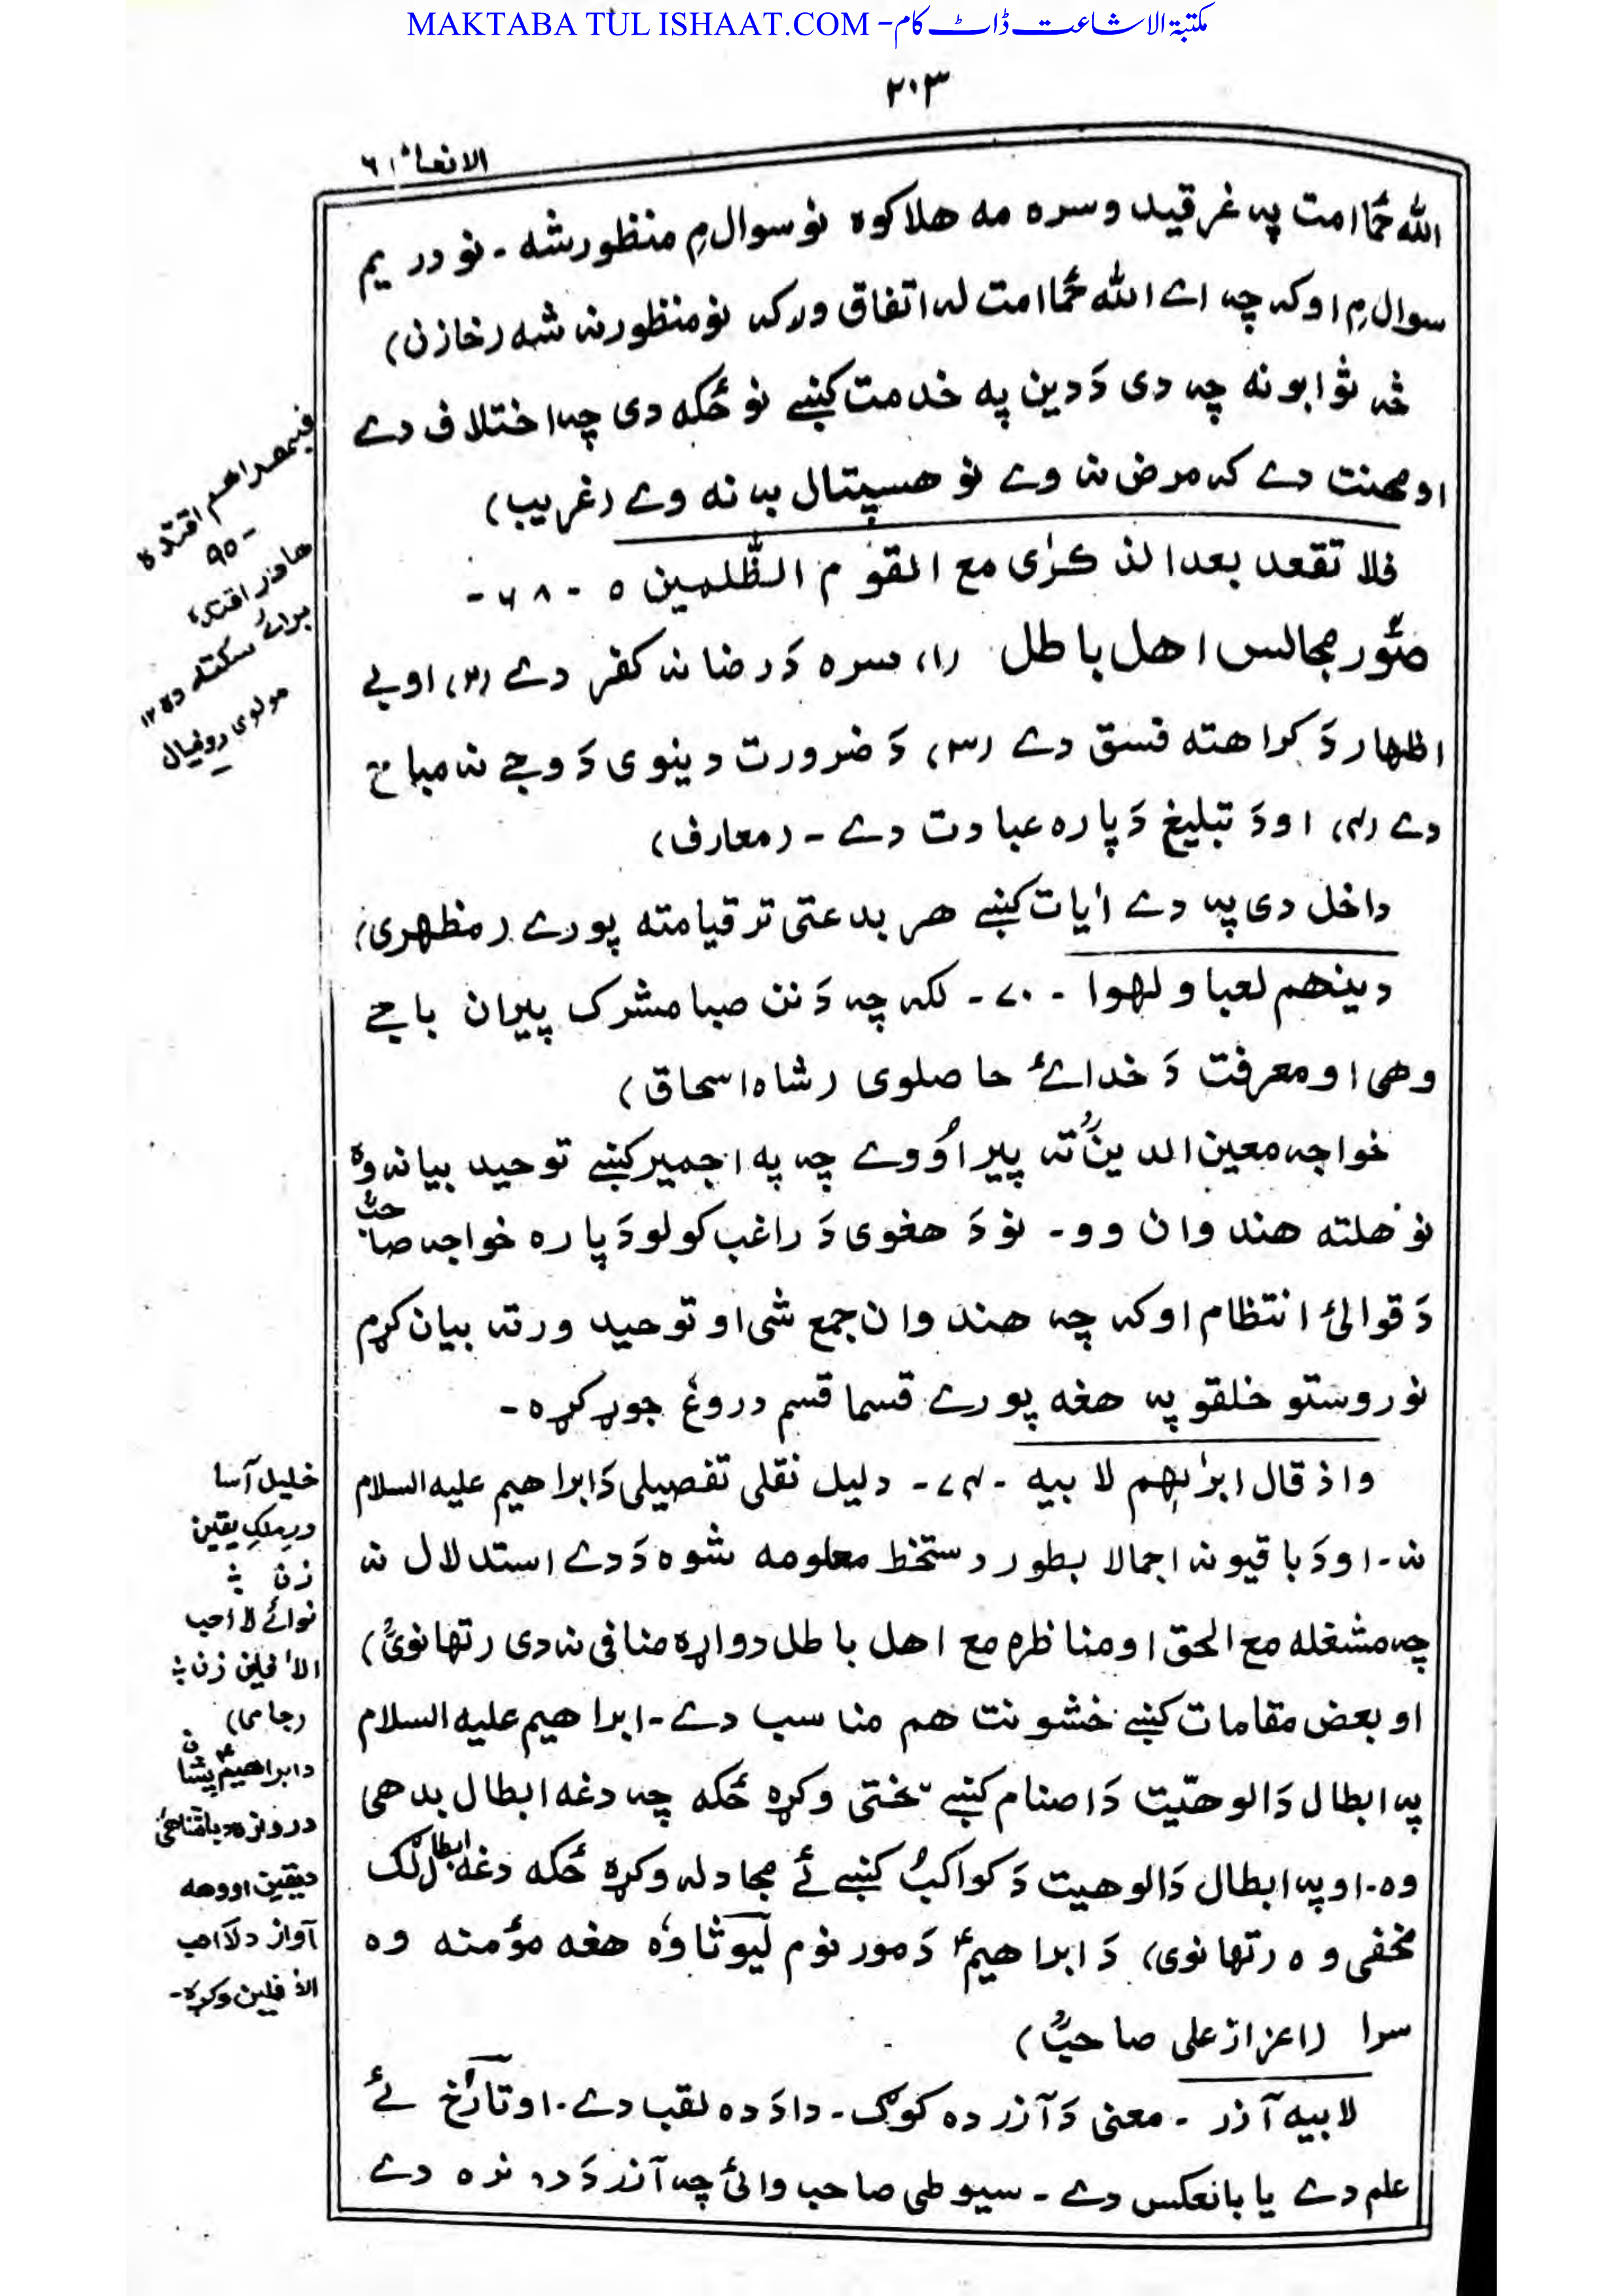 MAKTABA TUL ISHAAT.COM - مکتبۃ الاشاعت ڈاٹ کام
۲۰۳
الانعام ۶
الله ځما امت په غرقیدو سره مه هلاکوه نو سوال مِ منظور شه - نو دریم
سوال مِ اوکه چه اے الله ځما امت له اتفاق ورکه نو منظور نه شه (خازن)
څه ثوابونه چه دی دَ دین په خدمت کښے نو ځکه دی چه اختلاف دے
او محنت دے که مرض نه وے نو هسپتال به نه وے (غریب)
فلا تقعد بعد الذکرٰی مع القوم الظّٰلمین ٥ - ۶۸ -
صُوَر مجالس اهل باطل (۱) سره دَ رضا نه کفر دے (۲) او بے
اظهار دَ کراهته فسق دے (۳) دَ ضرورت دینوی دَ وجے نه مباح
دے (۴) او دَ تبلیغ دَ پاره عبادت دے - (معارف)
داخل دی په دے اٰیات کښے هر بدعتی تر قیامته پورے (مظهری)
دینهم لعبا و لهوا - ۷۰ - لکه چه دَ نن صبا مشرک پیران باجے
وهی او معرفت دَ خدائے حاصلوی (شاه اسحاق)
خواجه معین الدینؒ ته پیر اُووے چه په اجمیر کښے توحید بیانه وه
نو هلته هندوان وو - نو دَ هغوی دَ راغب کولو دَ پاره خواجه صاحبؒ
دَ قوالئ انتظام اوکه چه هندوان جمع شی او توحید ورته بیان کړم
نو روستو خلقو په هغه پورے قسما قسم دروغ جوړ کړه -
واذ قال ابرٰہیم لابیه - ۷۴ - دلیل نقلی تفصیلی دَ ابراهیم علیه السلام
نه - او دَ باقیو نه اجمالا بطور دستخط معلومه شوه دَ دے استدلال نه
چه مشغله مع الحق او مناظره مع اهل باطل دواړه منافی نه دی (تهانویؒ)
او بعض مقامات کښے خشونت هم مناسب دے - ابراهیم علیه السلام
په ابطال دَ الوهیّت دَ اصنام کښے سختی وکړه ځکه چه دغه ابطال بدهی
وه - او په ابطال دَ الوهیت دَ کواکب کښے ئے مجادله وکړه ځکه دغه ابطال لِک
مخفی وه (تهانوی) دَ ابراهیمؑ دَ مور نوم لیوثا وه هغه مؤمنه وه
سرا (اعزاز علی صاحبؒ)
لابیه آذر - معنی دَ آذر ده کوگ - دا دَ ده لقب دے - او تارخ ئے
علم دے یا بالعکس دے - سیوطی صاحب وائی چه آذر دَ ده نره دے
فبهدٰهم اقتده
۹۰ -
ها در اقتده
برائے سکته ده ۱۲
مولوی روخیال
خلیل آسا
در ملکِ یقین
زن ؞
نوائے لا احب
الاٰفلین زن ؞
(جامی)
د ابراهیمؑ پشان
دروازه د باقتناهئ
دیقین اووهه
آواز د لا احب
الاٰفلین وکړه -